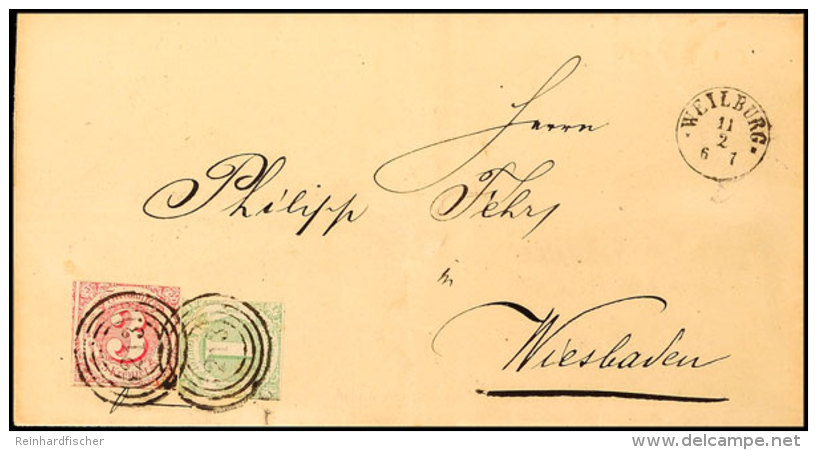 WEILBURG
11
2
6 7
Herrn
Philipp Fehr
in
Wiesbaden
3 1
Reinhardfischer
www.delcampe.net